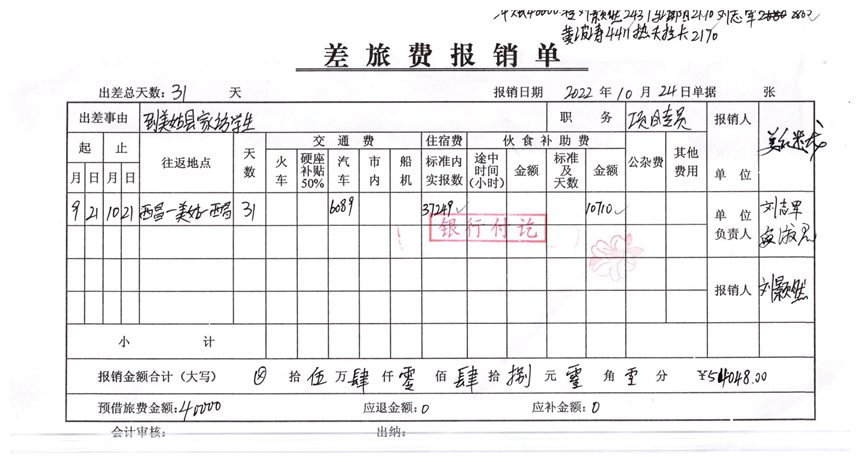 冲账40000 刘颖然2431 刘志军
黄波涛4411 热夫拉卡2170
差旅费报销单
出差总天数: 31 天 报销日期 2022 年 10 月 24 日 单据 张
出差事由 到美姑县家访学生 职务 项目专员 报销人
起 止 往返地点 天数 交通费 住宿费 伙食补助费 公杂费 其他费用
月 日 月 日 火车 硬座补贴50% 汽车 市内 船机 标准内实报数 途中时间(小时) 金额 标准及天数 金额 单位
9 21 10 21 西昌—美姑—西昌 31 6089 37249 10710 单位负责人 刘志军
银行付讫
报销人 刘颖然
小计
报销金额合计(大写) ⊗ 拾 伍 万 肆 仟 零 佰 肆 拾 捌 元 零 角 零 分 ¥54048.00
预借旅费金额: 40000 应退金额: 0 应补金额: 0
会计审核: 出纳: